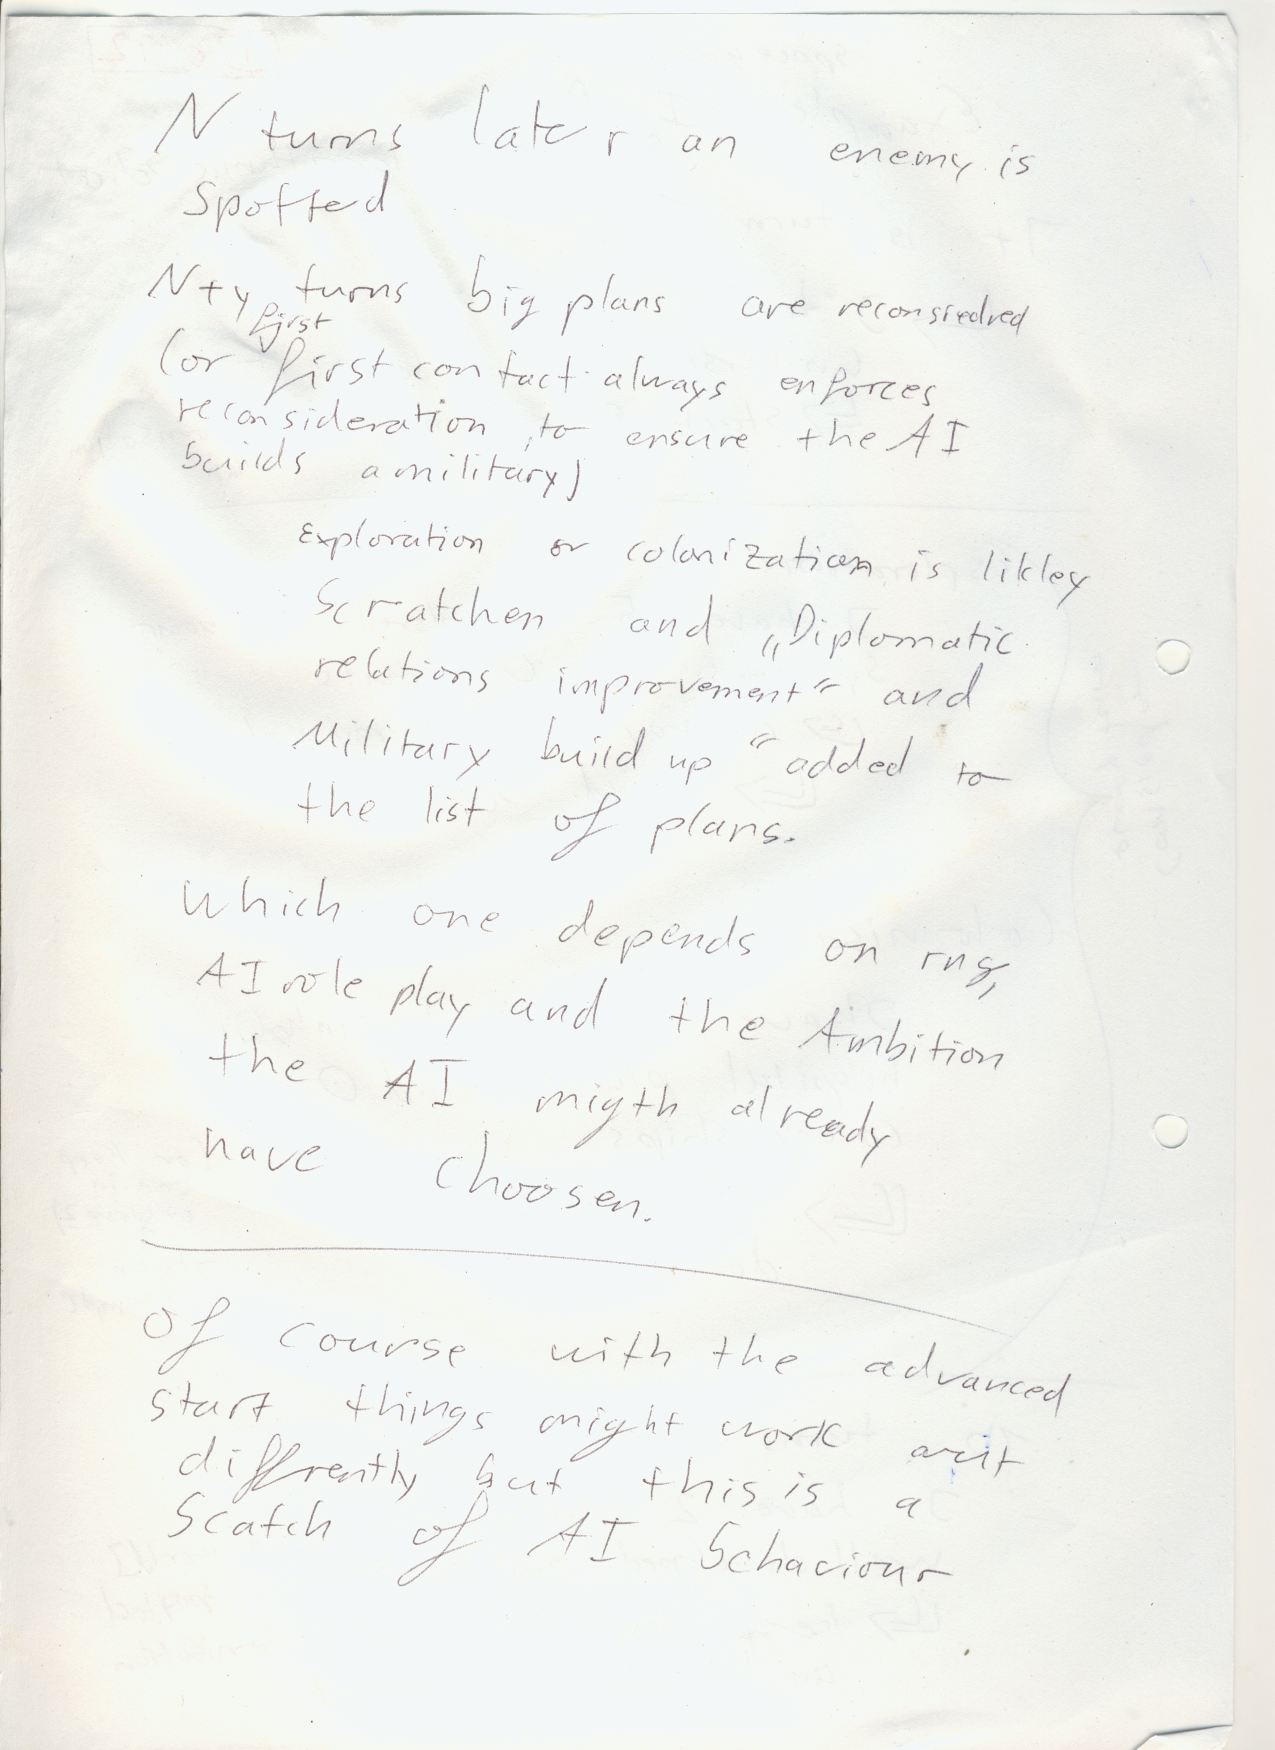 N turns later an enemy is
Spotted
N+y turns big plans are reconsiedred
first
(or first contact always enforces
reconsideration, to ensure the AI
builds a military)
Exploration or colonization is likley
Scratchen and „Diplomatic
relations improvement“ and
Military build up “ added to
the list of plans.
Which one depends on rng,
AI role play and the Ambition
the AI migth already
have choosen.
Of course with the advanced
start things might work out
diffrently but this is a
Scatch of AI Behaviour